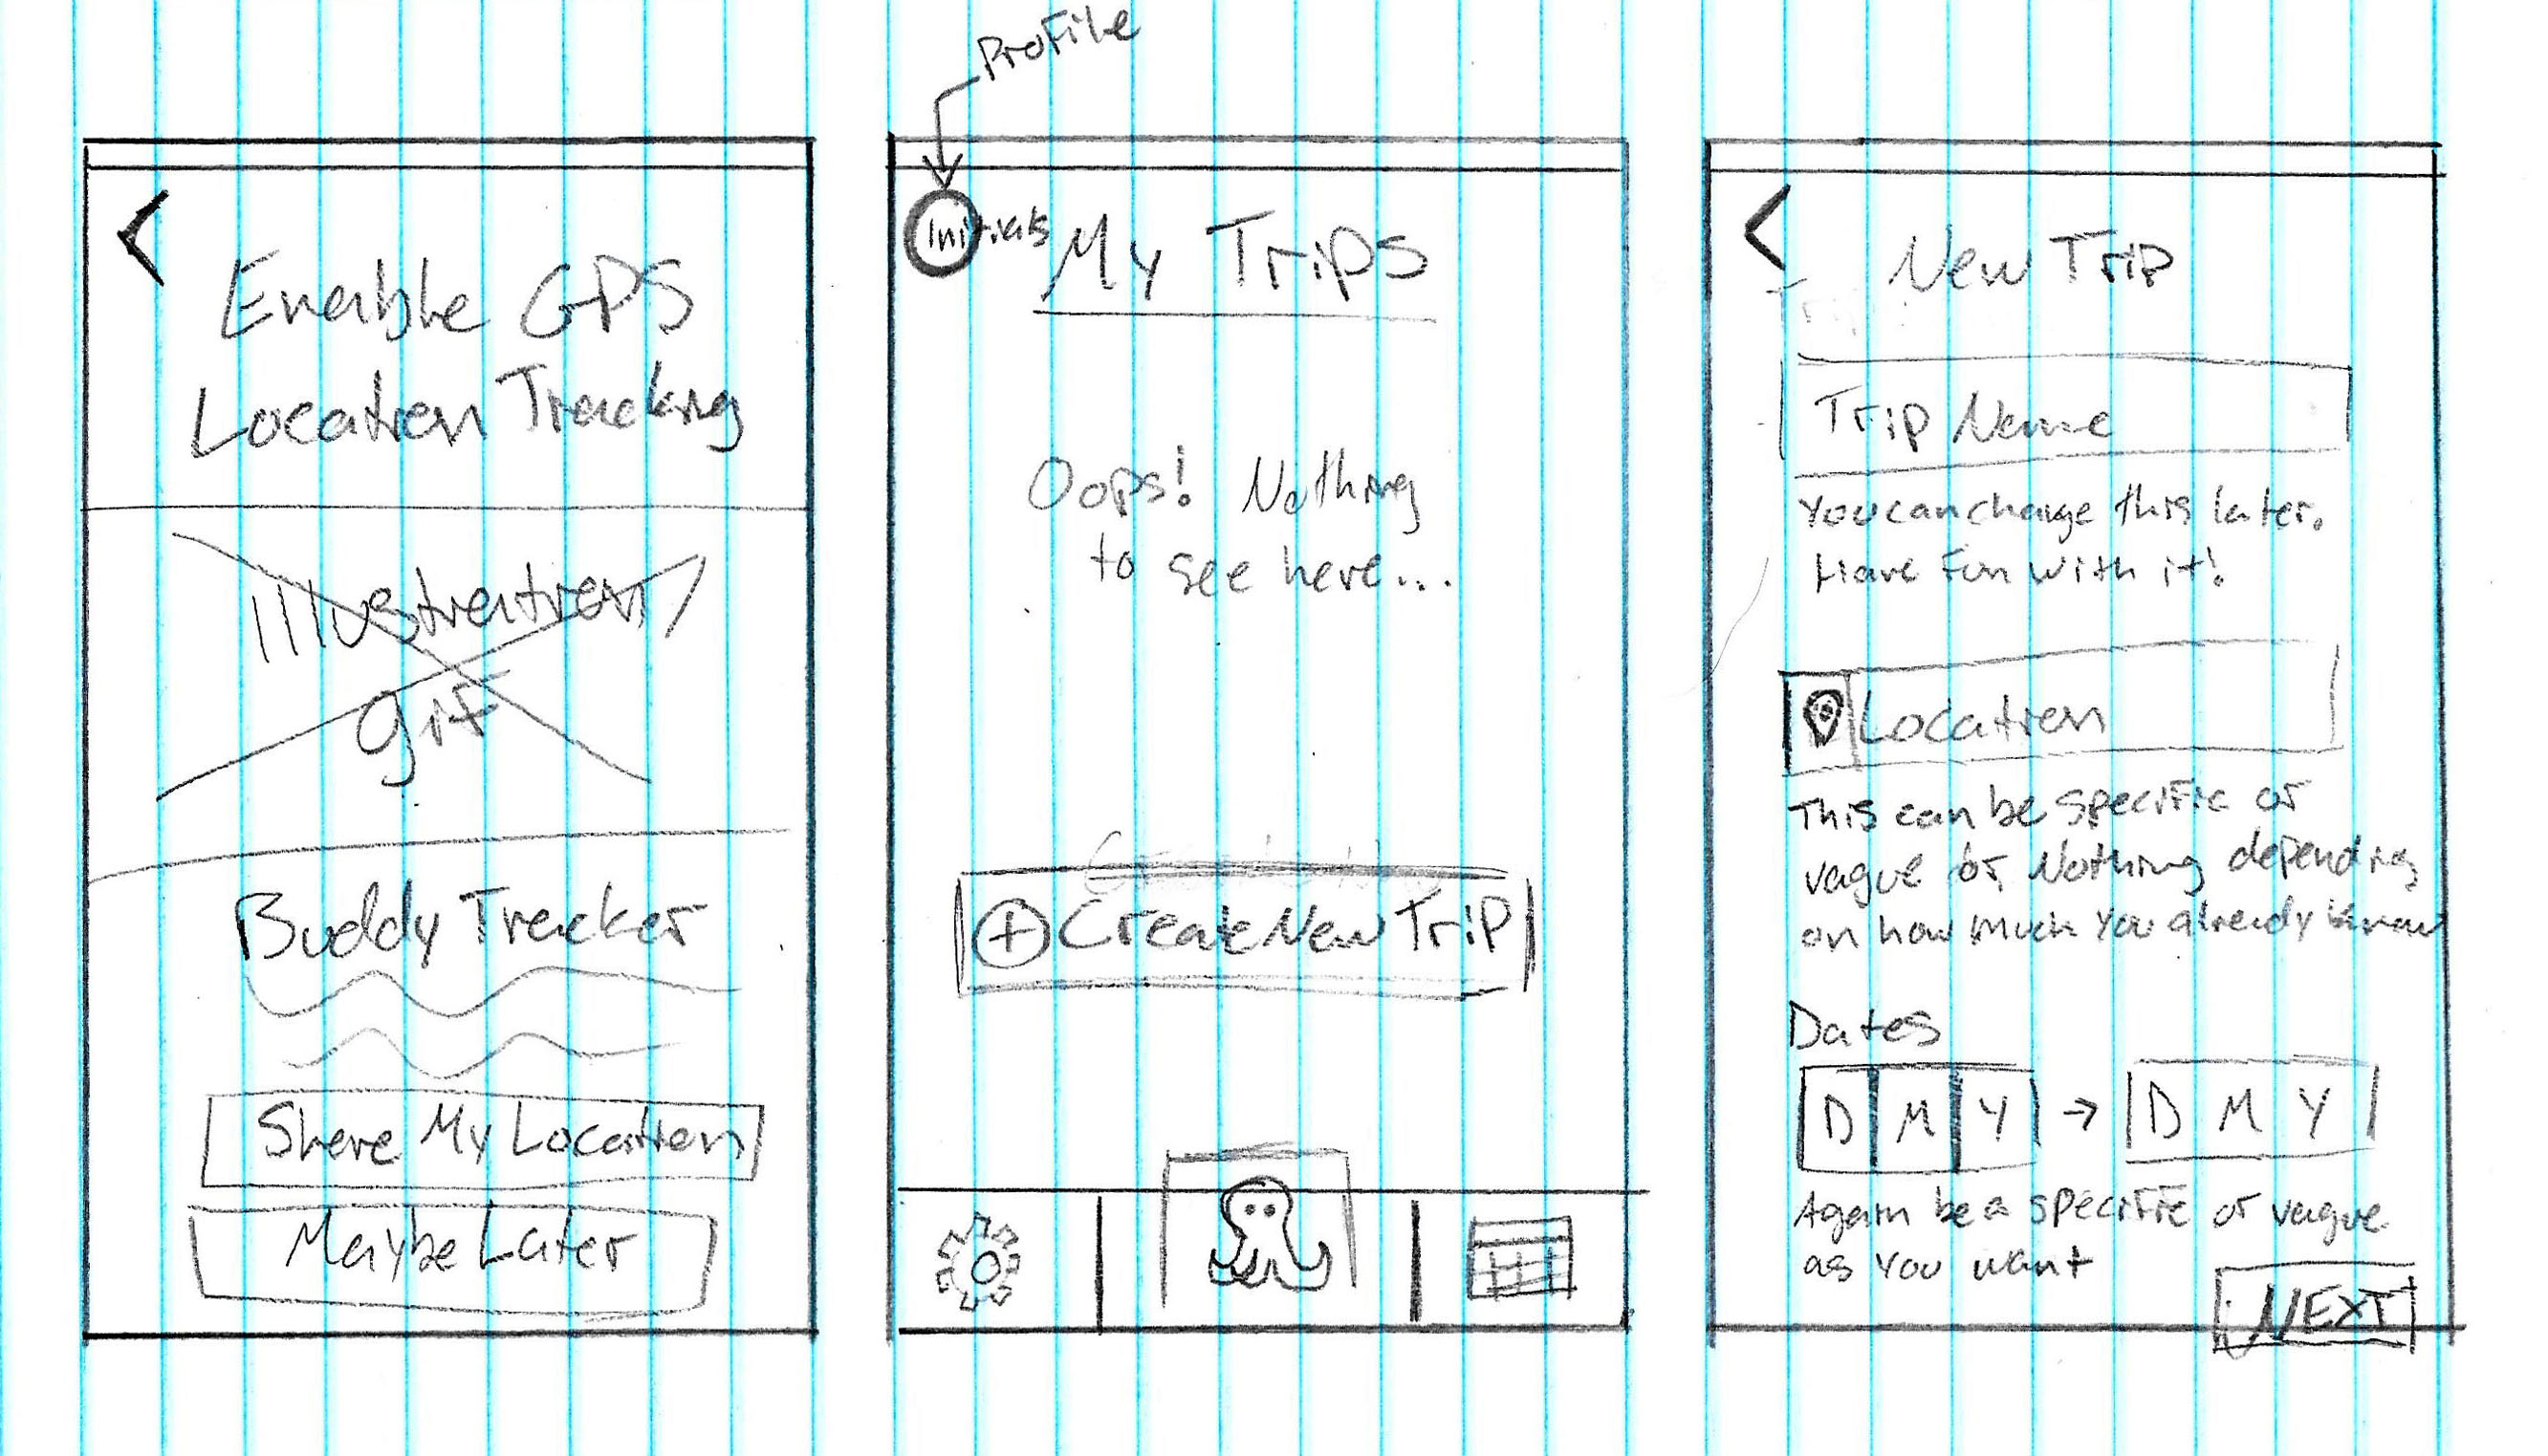 Profile
Enable GPS
Location Tracking
Illustration/
gif
Buddy Tracker
Share My Location
Maybe Later
Initials
My Trips
Oops! Nothing
to see here...
+ Create New Trip
New Trip
Trip Name
You can change this later.
Have Fun with it!
Location
This can be specific or
vague or Nothing depending
on how much you already know
Dates
D M Y → D M Y
Again be a specific or vague
as you want
NEXT